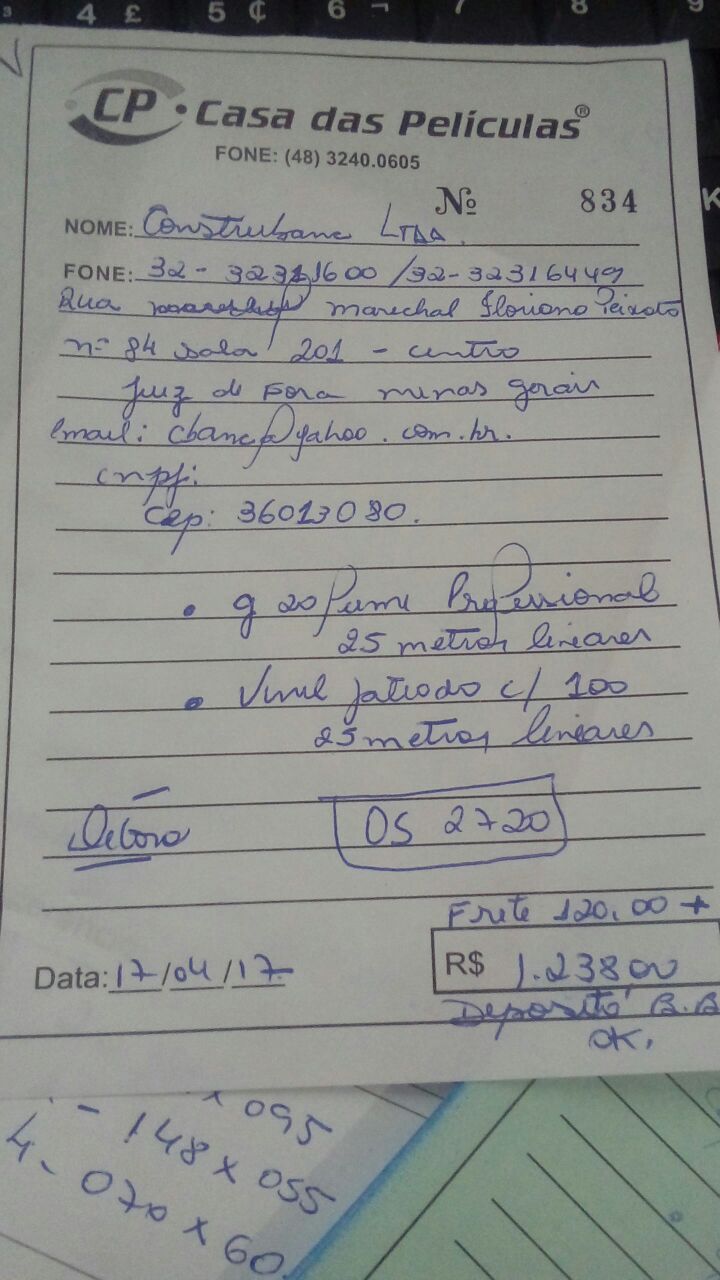 3 4 £ 5 ¢ 6 ¬ 7 8 9
K
CP • Casa das Películas®
FONE: (48) 3240.0605
Nº 834
NOME: Construbanc LTDA.
FONE: 32 - 32311600 / 32-32316449
Rua marechal Floriano Peixoto
nº 84 sala 201 - centro
Juiz de Fora minas gerais
email: cbanc@yahoo.com.br.
cnpj:
Cep: 36013080.
• g 20 fume Professional
25 metros lineares
• Vinil jatiado c/ 100
25 metros lineares
Debora
OS 2720
Frete 120,00 +
Data: 17/04/17
R$ 1.238 00
Deposito B.B
OK.
x 095
- 148 x 055
4- 070 x 60